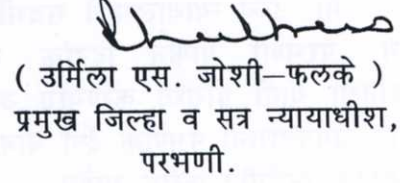 ( उर्मिला एस. जोशी–फलके )
प्रमुख जिल्हा व सत्र न्यायाधीश,
परभणी.